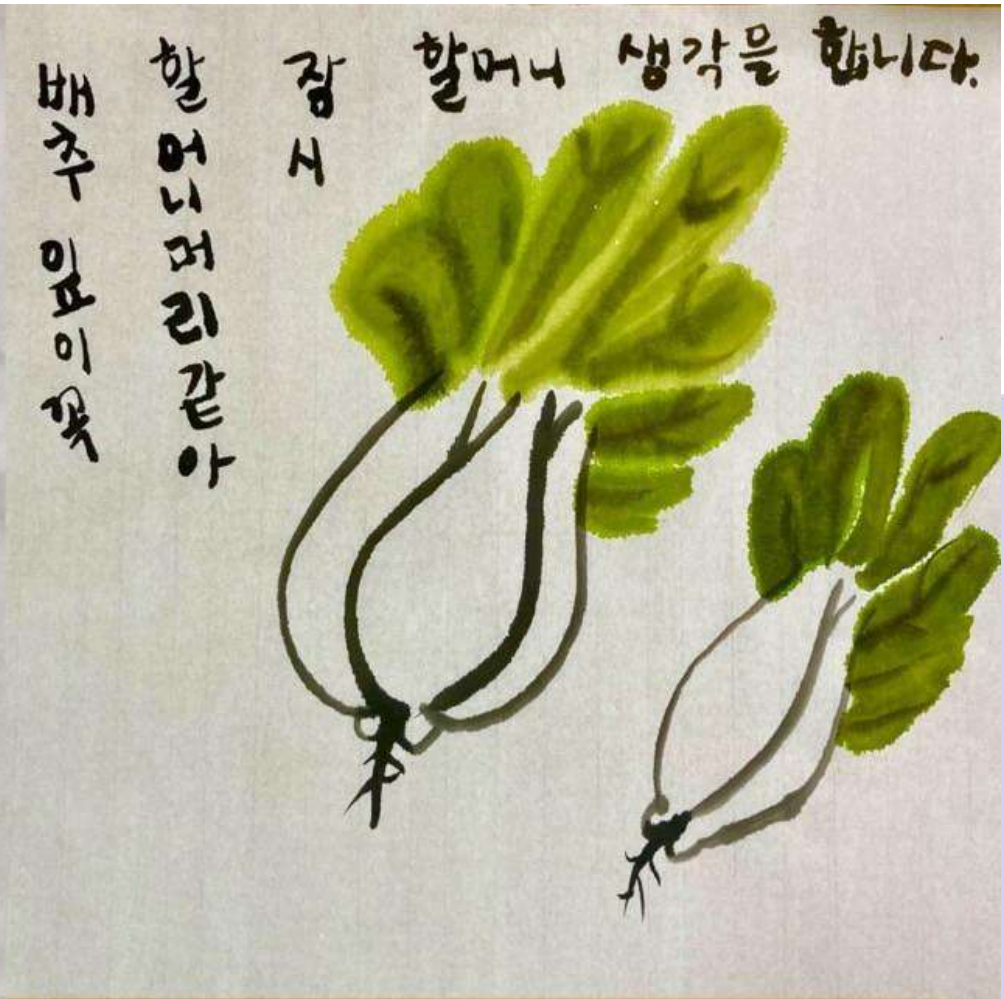 배추 잎이 꼭
할머니머리같아
잠시
할머니 생각을 합니다.